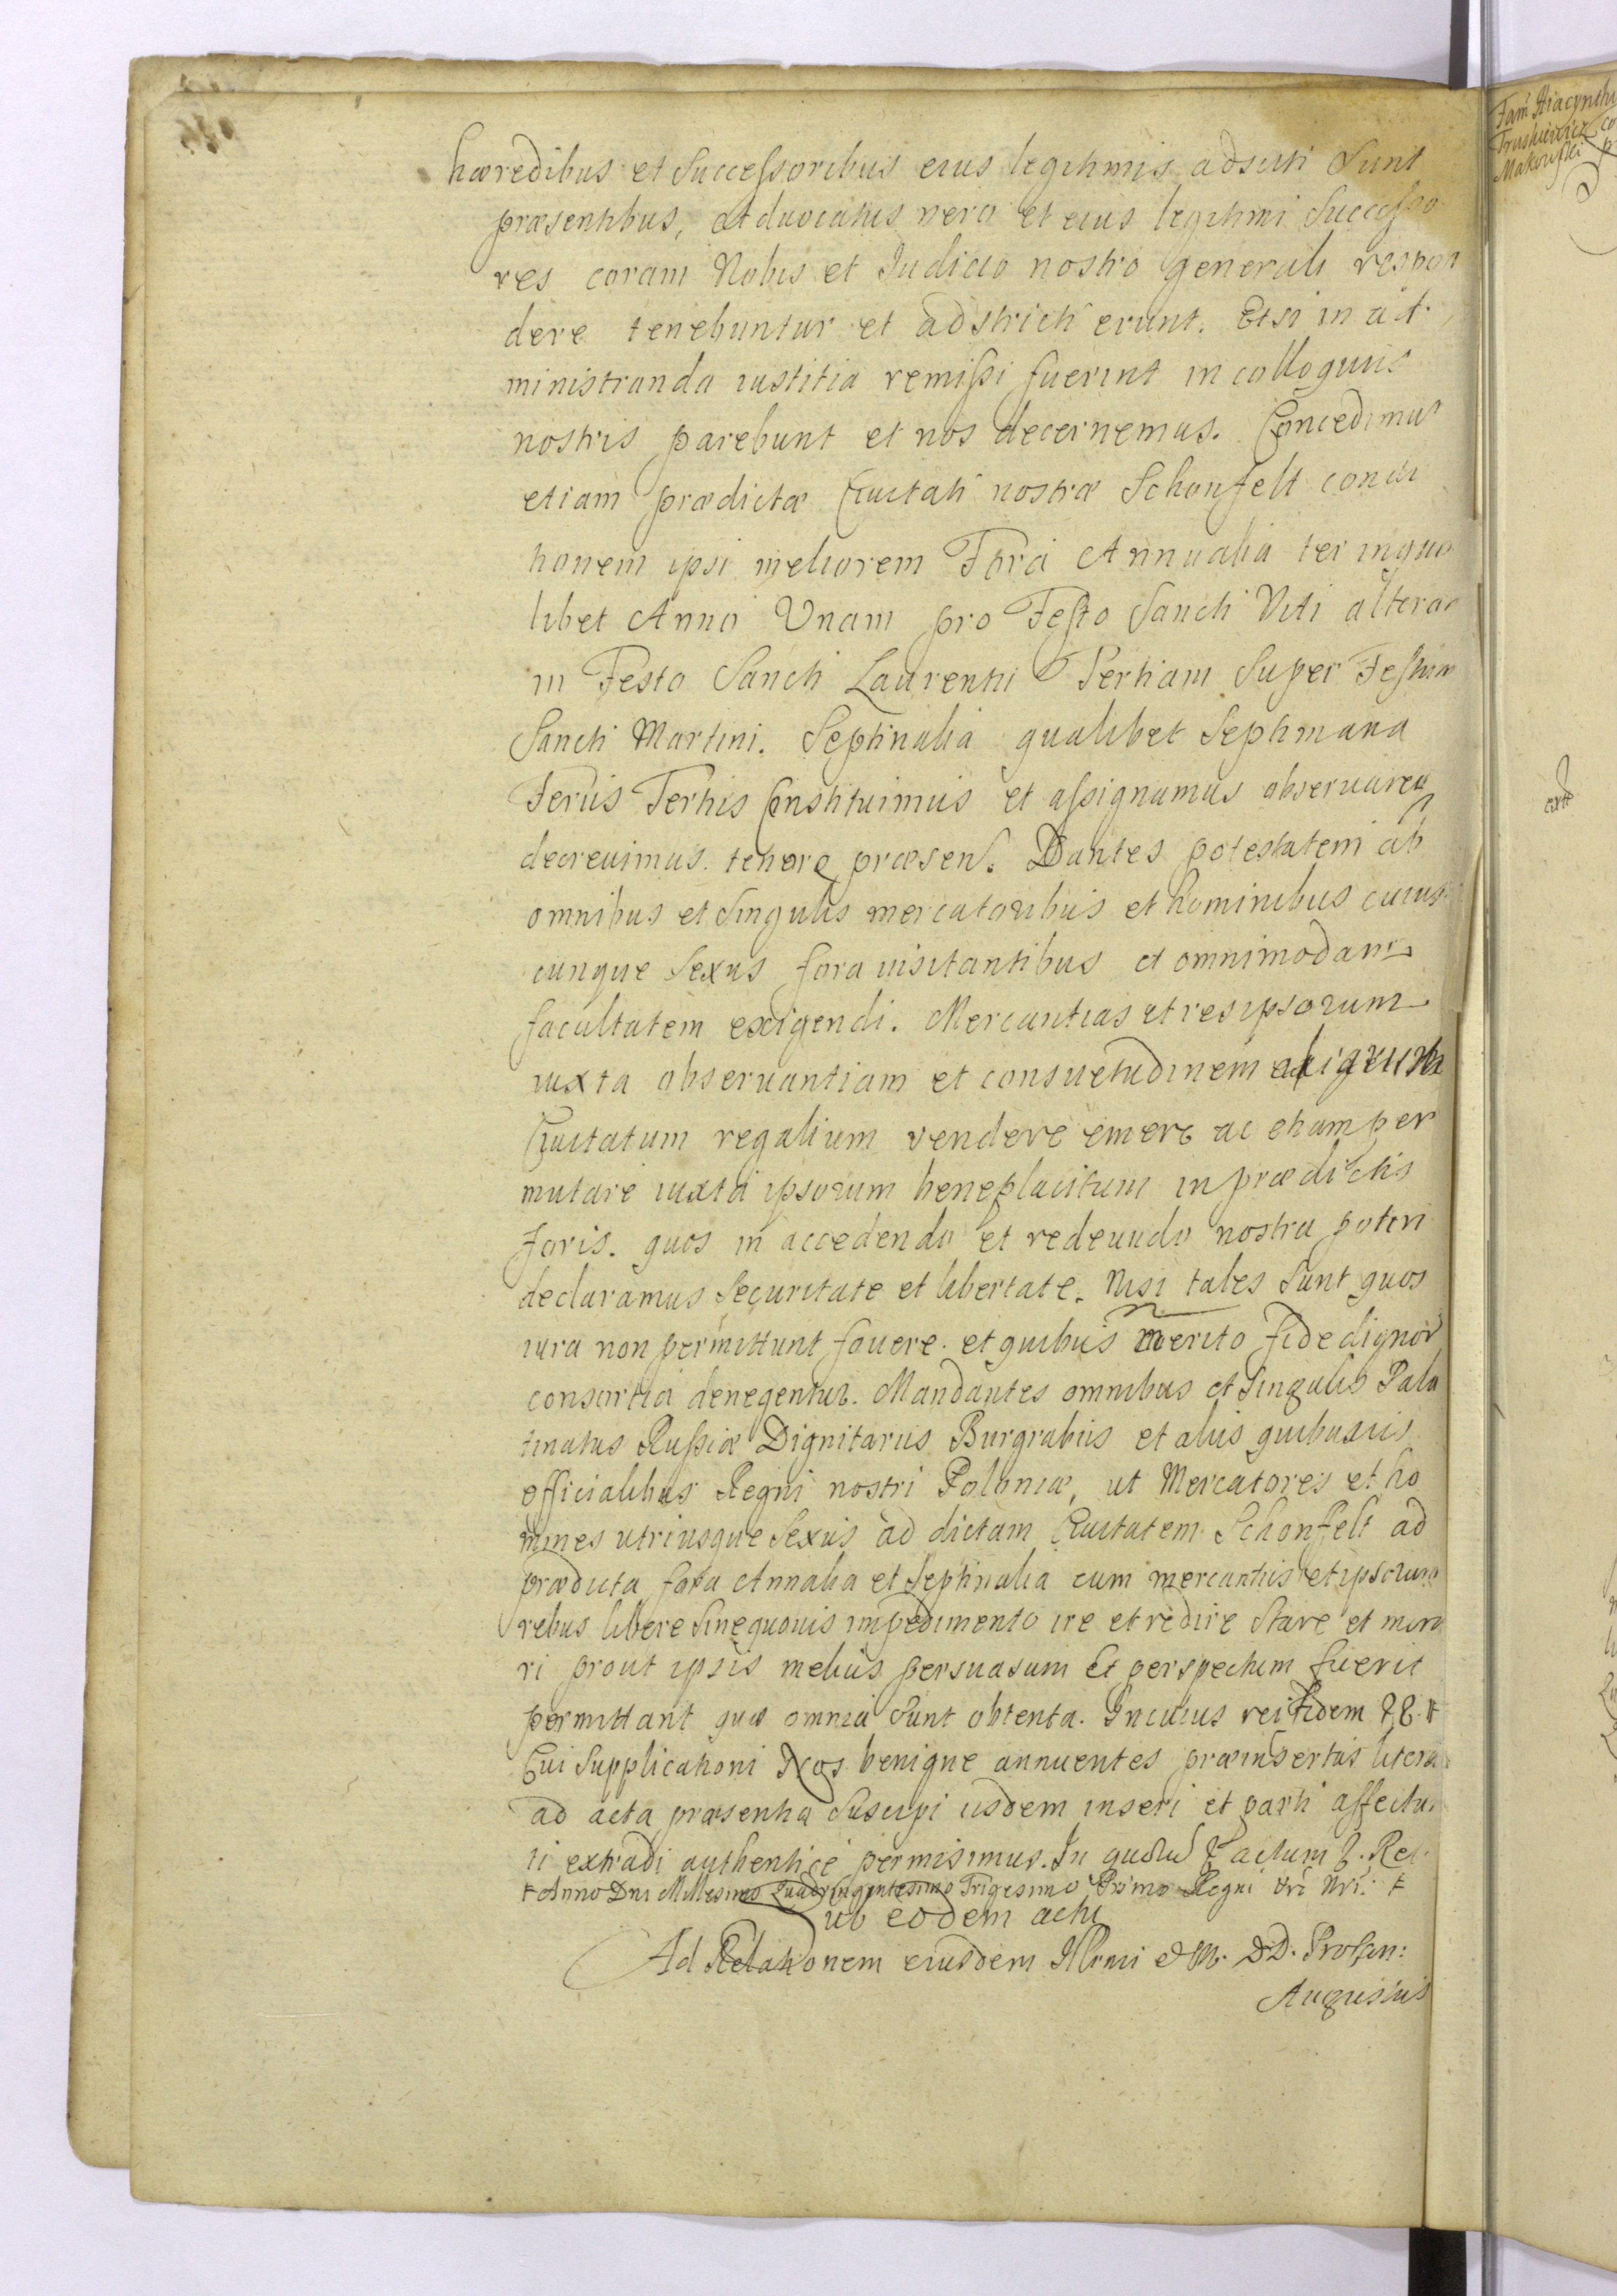 hæredibus et Successoribus eius legitimis adsciti Sunt
præsentibus, Advocatus vero et eius legitimi Successo
res coram Nobis et Judicio nostro generali respon
dere tenebuntur et adstricti erunt. Etsi in ad
ministranda iustitia remissi fuerint in colloquiis
nostris parebunt et nos decernemus. Concedimus
etiam prædictæ Civitati nostræ Schonfelt condi
tionem ipsi meliorem Fora Annualia ter in quo
libet Anno Unam pro Festo Sancti Viti alteram
in Festo Sancti Laurentii Tertiam Super Festum
Sancti Martini. Septinalia qualibet Septimana
Feriis Tertiis Constituimus et assignamus observarea
decrevimus tenore præsen. Dantes potestatem ab
omnibus et Singulis mercatoribus et hominibus cuius
cunque Sexus fora visitantibus et omnimodam
facultatem exigendi. Mercantias et res ipsorum
iuxta observantiam et consuetudinem aliarum
Civitatum regalium vendere emere ac etiam per
mutare iuxta ipsorum beneplacitum in prædictis
foris. quos in accedendo et redeundo nostra potiri
declaramus Securitate et libertate. Nisi tales Sunt quos
iura non permittunt fovere. et quibus merito fide dignor
consortia denegentur. Mandantes omnibus et Singulis Pala
tinatus Russiæ Dignitariis Burgrabiis et aliis quibusvis
officialibus Regni nostri Poloniæ, ut Mercatores et ho
mines utriusque Sexus ad dictam Civitatem Schonfelt ad
prædicta fora Annalia et Septinalia cum mercantiis et ipsorum
rebus libere Sine quovis impedimento ire et redire Stare et mora
ri prout ipsis melius persuasum Et perspectum fuerit
permittant quæ omnia Sunt obtenta. In cuius rei fidem
Cui Supplicationi Nos benigne annuentes præinsertas litera
ad acta præsentia Suscipi iisdem inseri et parti affecta
ti extradi authentice permisimus. In quorum Factum Reg.
Anno Dni Millesimo Quadringentesimo Trigesimo Primo Regni vri Nri:
ut eodem actu
Ad Relationem eiusdem Illrmi et M. DD. Procan:
Augustus
Fam Hiacynthi
Truskiewicz co
Makowski p
ext